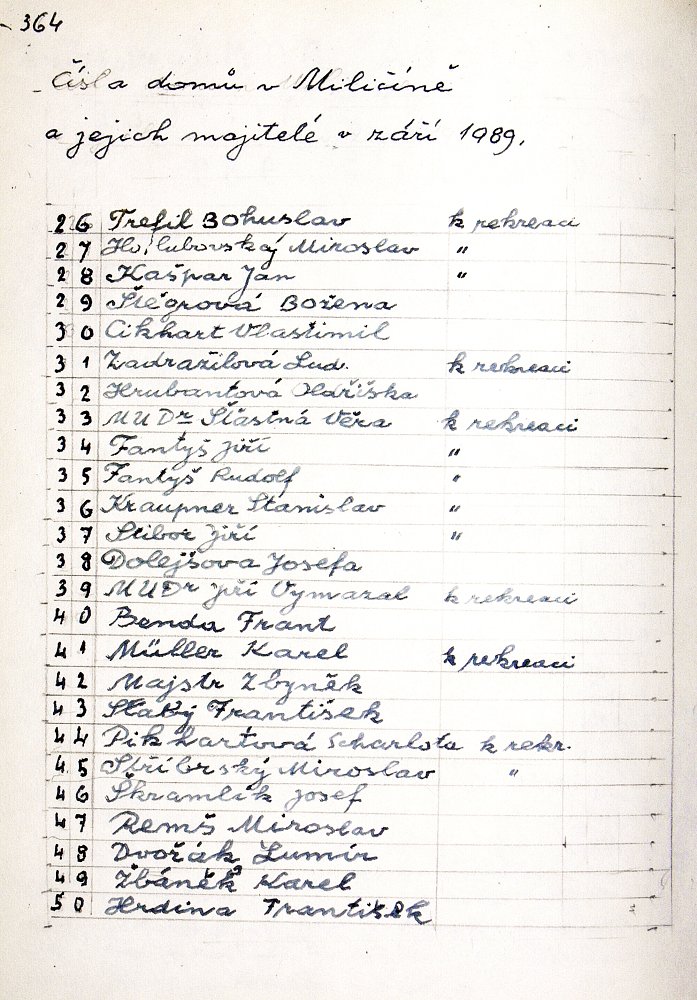 364
Čísla domů v Miličíně
a jejich majitelé v září 1989.
26 Trefil Bohuslav k rekreaci
27 Holubovský Miroslav "
28 Kašpar Jan "
29 Šlégrová Božena
30 Cikhart Vlastimil
31 Zadražilová Lud. k rekreaci
32 Hrubantová Oldřiška
33 MUDr Šťastná Věra k rekreaci
34 Fantyš Jiří "
35 Fantyš Rudolf "
36 Kraupner Stanislav "
37 Stibor Jiří "
38 Dolejšova Josefa
39 MUDr Jiří Vymazal k rekreaci
40 Benda Frant
41 Müller Karel k rekreaci
42 Majstr Zbyněk
43 František
44 Pikhartová Scharlota k rekr.
45 Stříbrský Miroslav "
46 Škramlík Josef
47 Remš Miroslav
48 Dvořák Lumír
49 Žbáněk Karel
50 Hrdina František